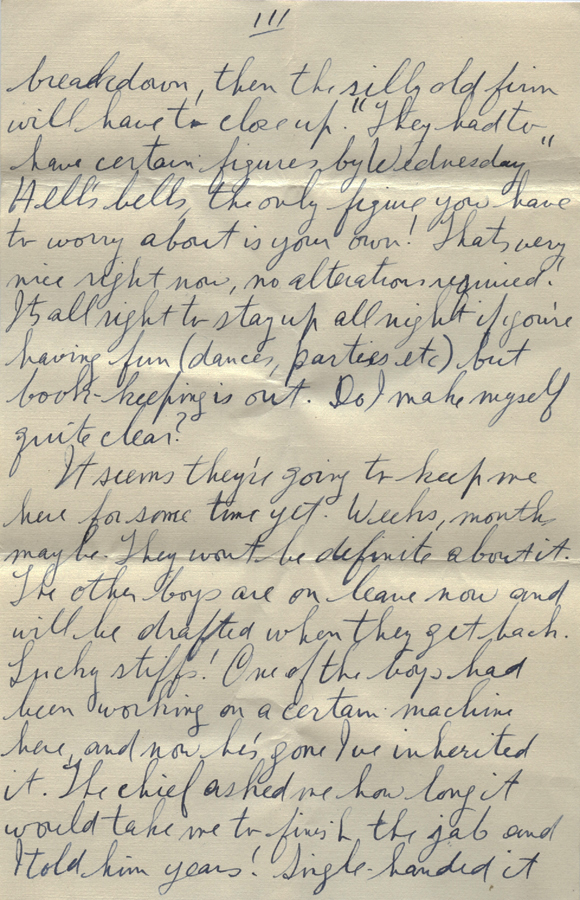 III
breakdown, then the silly old firm
will have to close up. "They had to
have certain figures by Wednesday"
Hell's bells, the only figure you have
to worry about is your own! Thats very
nice right now, no alterations required!
Its all right to stay up all night if you're
having fun (dances, parties etc) but
book-keeping is out. Do I make myself
quite clear?
It seems they're going to keep me
here for some time yet. Weeks, months
maybe. They won't be definite about it.
The other boys are on leave now and
will be drafted when they get back.
Lucky stiffs! One of the boys had
been working on a certain machine
here, and now he's gone I've inherited
it. The chief asked me how long it
would take me to finish the job and
I told him years! Single-handed it